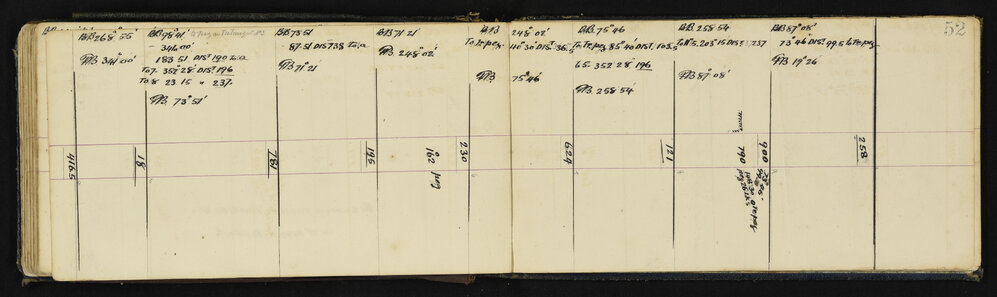 52
BB 268° 55'
FB 341° 00'
BB 98° 41'
341° 00'
183 51 DIST 190
To 7. 352° 28' DIST 196
To 8 23.15 " 237.
FB 73° 51'
BB 73 51
87.51 DIST 738
FB 71° 21'
BB 71 21
FB 248° 02'
BB 248° 02'
To te peg. 116° 30' DIST 36.5
FB 75° 46'
BB. 75° 46
To te peg 85° 40' DIST. 103.5
65. 352° 28' 196
FB 258 54'
BB 258 54
203° 15 DIST 237
FB 87° 08'
BB 87° 08'
73° 46 DIST. 99.5 to te peg.
FB 19° 26
4165
18
781
195
162 peg
230
624
121
790
900
258